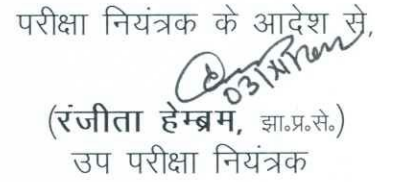 परीक्षा नियंत्रक के आदेश से,
(रंजीता हेम्ब्रम, झा॰प्र॰से॰)
उप परीक्षा नियंत्रक